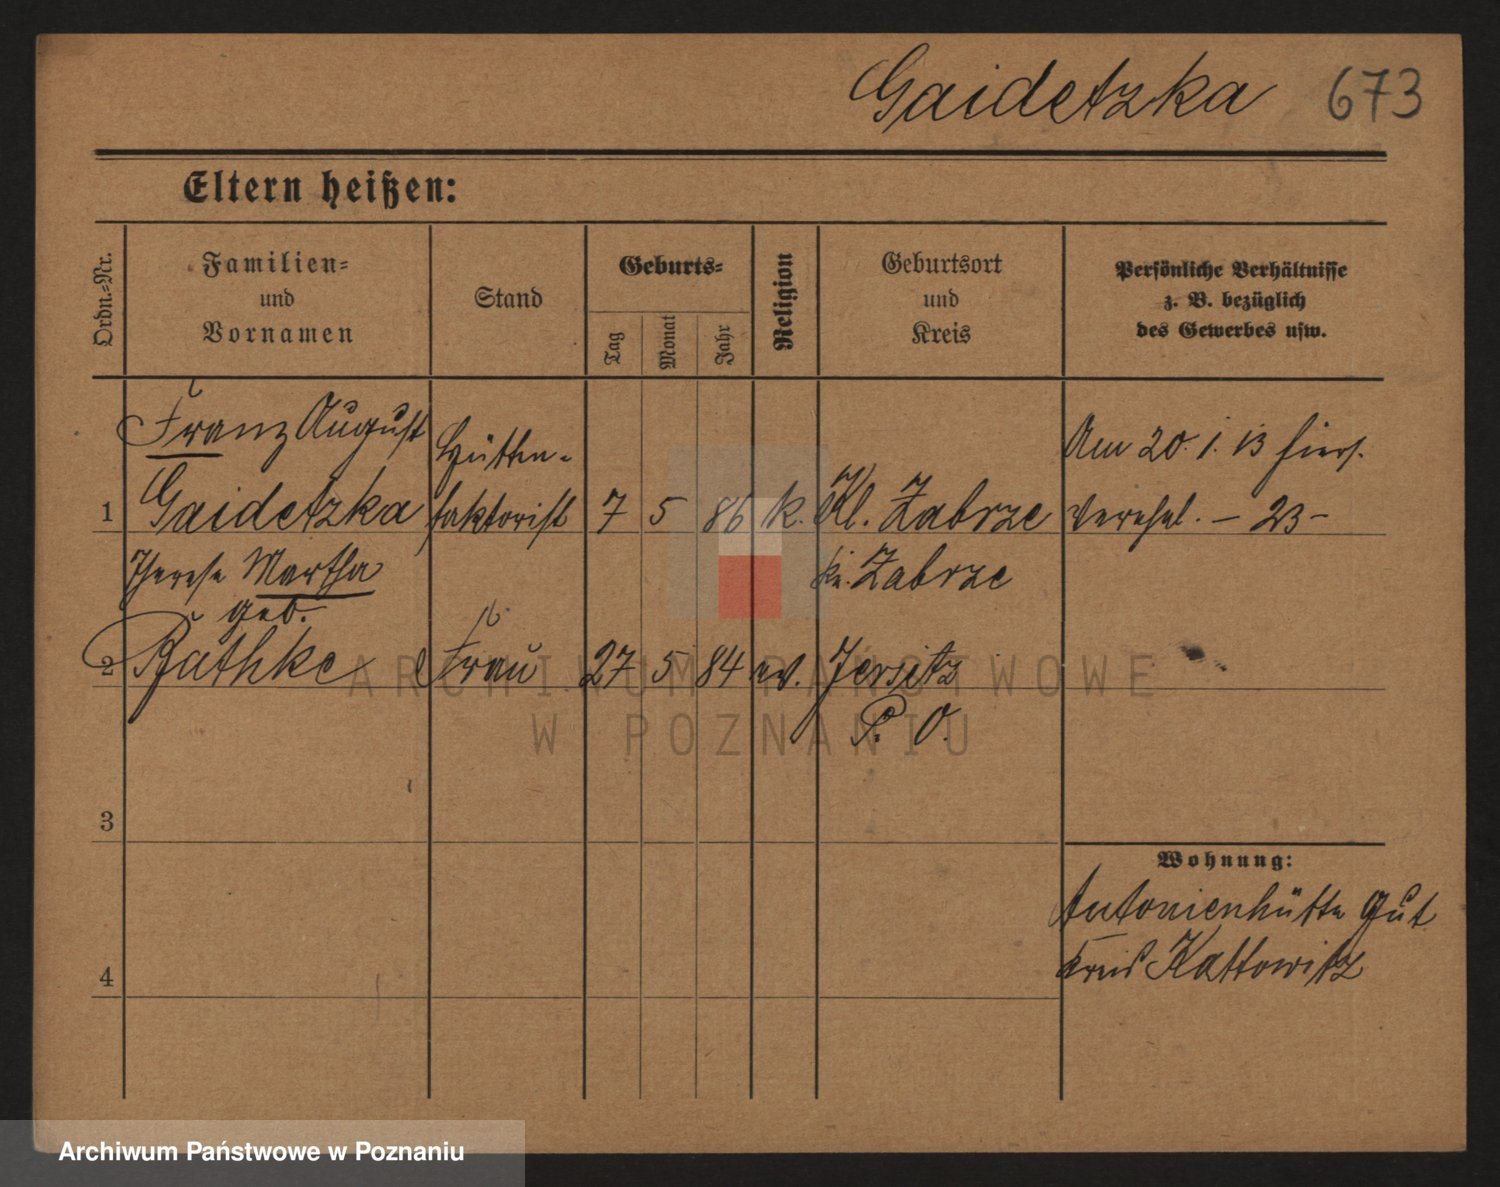 Gaidetzka 673
Eltern heißen:
Ordn.-Nr.
Familien-
und
Vornamen
Stand
Geburts-
Tag
Monat
Jahr
Religion
Geburtsort
und
Kreis
Persönliche Verhältnisse
z. B. bezüglich
des Gewerbes usw.
Franz August
Gaidetzka
Hütten-
faktorist
1 7 5 86 k. Kl. Zabrze
Kr. Zabrze
Am 20. 1. 13 hiers.
verehel. – 23 –
Therese Martha
geb.
2 Rathke Frau 27 5 84 ev. Jersitz
P. O.
3
4
Wohnung:
Antonienhütte Gut
Kreis Kattowitz
ARCHIWUM PAŃSTWOWE
W POZNANIU
Archiwum Państwowe w Poznaniu